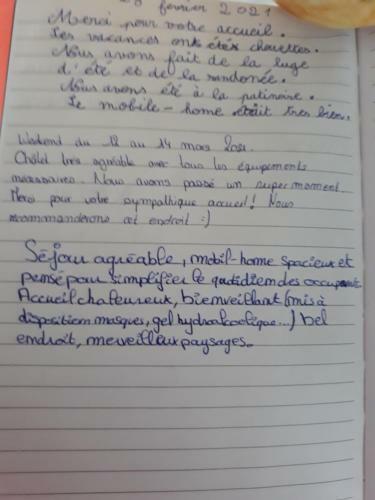 février 2021
Merci pour votre accueil.
Les vacances ont étés chouettes.
Nous avons fait de la luge
d'été et de la randonée.
Nous avons été à la patinoire.
Le mobile-home était très bien.
Weekend du 12 au 14 mars 2021.
Châlet très agréable avec tous les équipements
nécessaires. Nous avons passé un super moment
Merci pour votre sympathique accueil! Nous
recommanderons cet endroit :)
Séjour agréable, mobil-home spacieux et
pensé pour simplifier le quotidien des occupants
Accueil chaleureux, bienveillant (mis à
disposition masques, gel hydroalcoolique...) bel
endroit, merveilleux paysages.